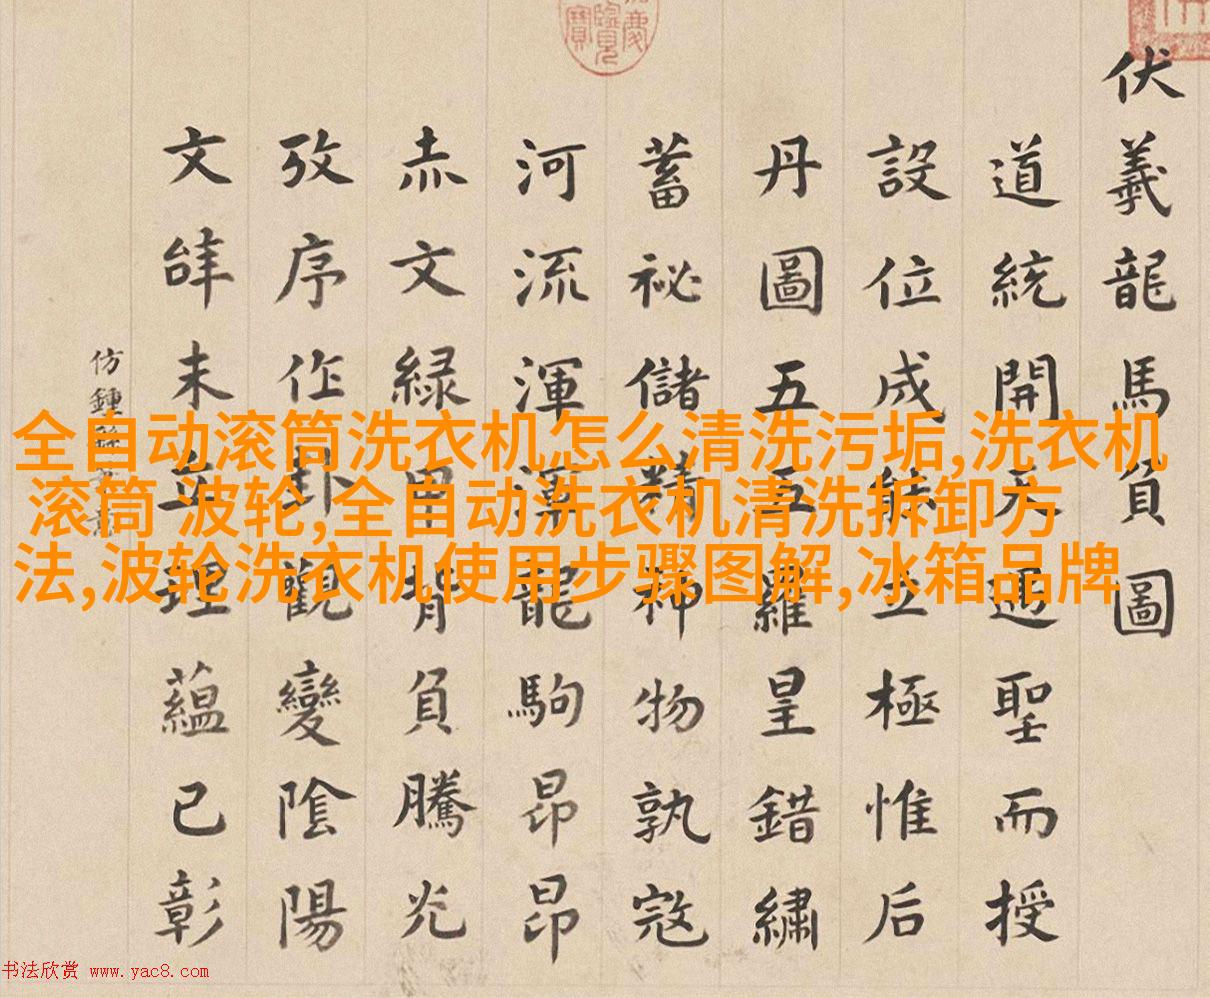 伏羲龍馬負圖
道統開天迺聖而授
設位成能立極惟后
丹圖五五羅皇錯繡
蓄祕儲精神物孰寇
河流渾渾龍駒昂昂
赤文緑甲背負騰光
攷序作卦觀變陰陽
文辭未立理蘊已彰
仿鍾繇
全自动滚筒洗衣机怎么清洗污垢,洗衣机
滚筒 波轮,全自动洗衣机清洗拆卸方
法,波轮洗衣机使用步骤图解,冰箱品牌
书法欣赏 www.yac8.com